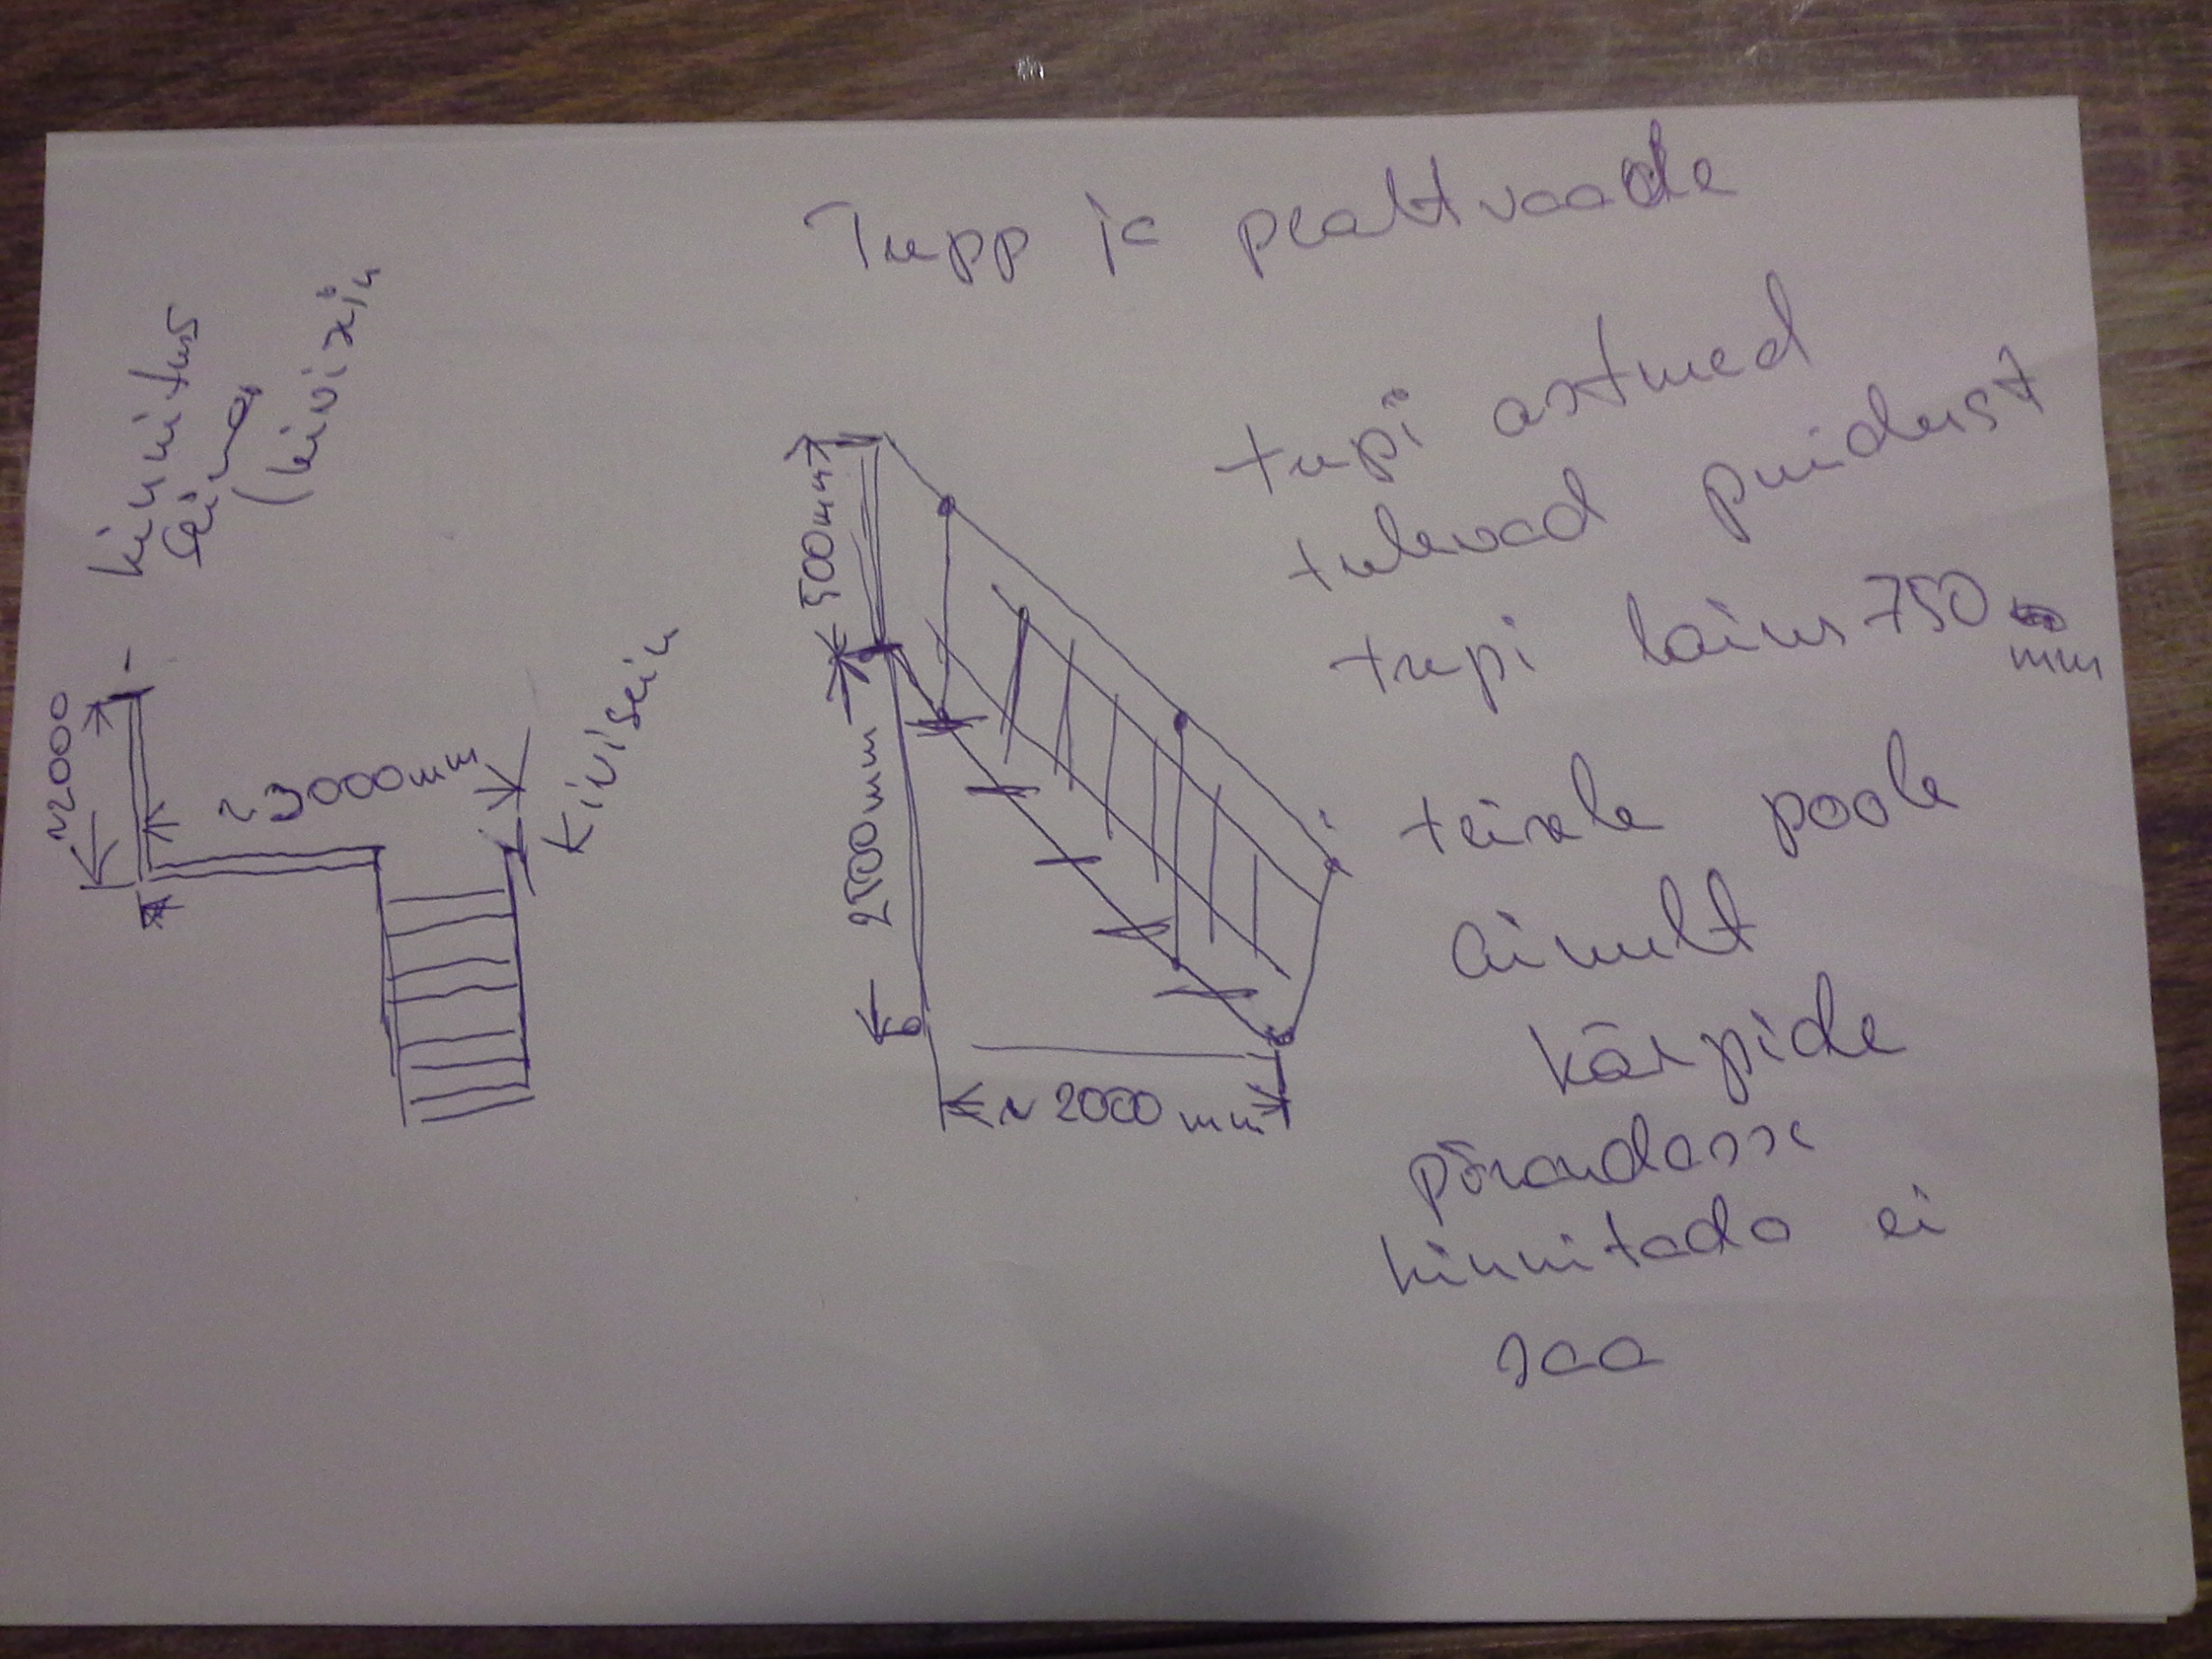 Trepp ja pealtvaade
kinnitus
seina
(kivisein
trepi astmed
tulevad puidust
trepi laius 750
mm
~2000
~3000mm
kivisein
500mm
2500mm
~2000mm
teisele poole
ainult
käepide
põrandasse
kinnitada ei
saa